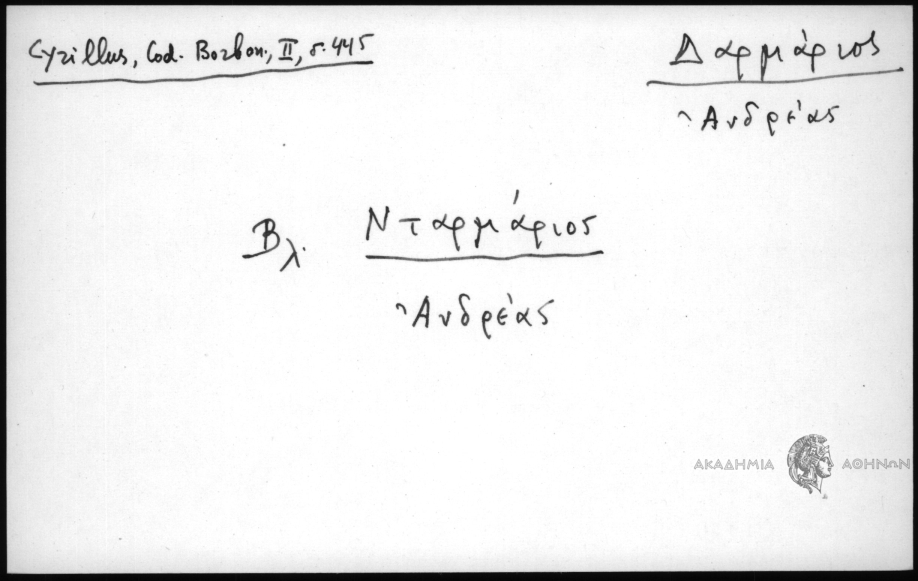 Cyrillus, Cod. Borbon., II, σ. 445
Δαρμάριος
Ἀνδρέας
Βλ. Νταρμάριος
Ἀνδρέας
ΑΚΑΔΗΜΙΑ ΑΘΗΝΩΝ